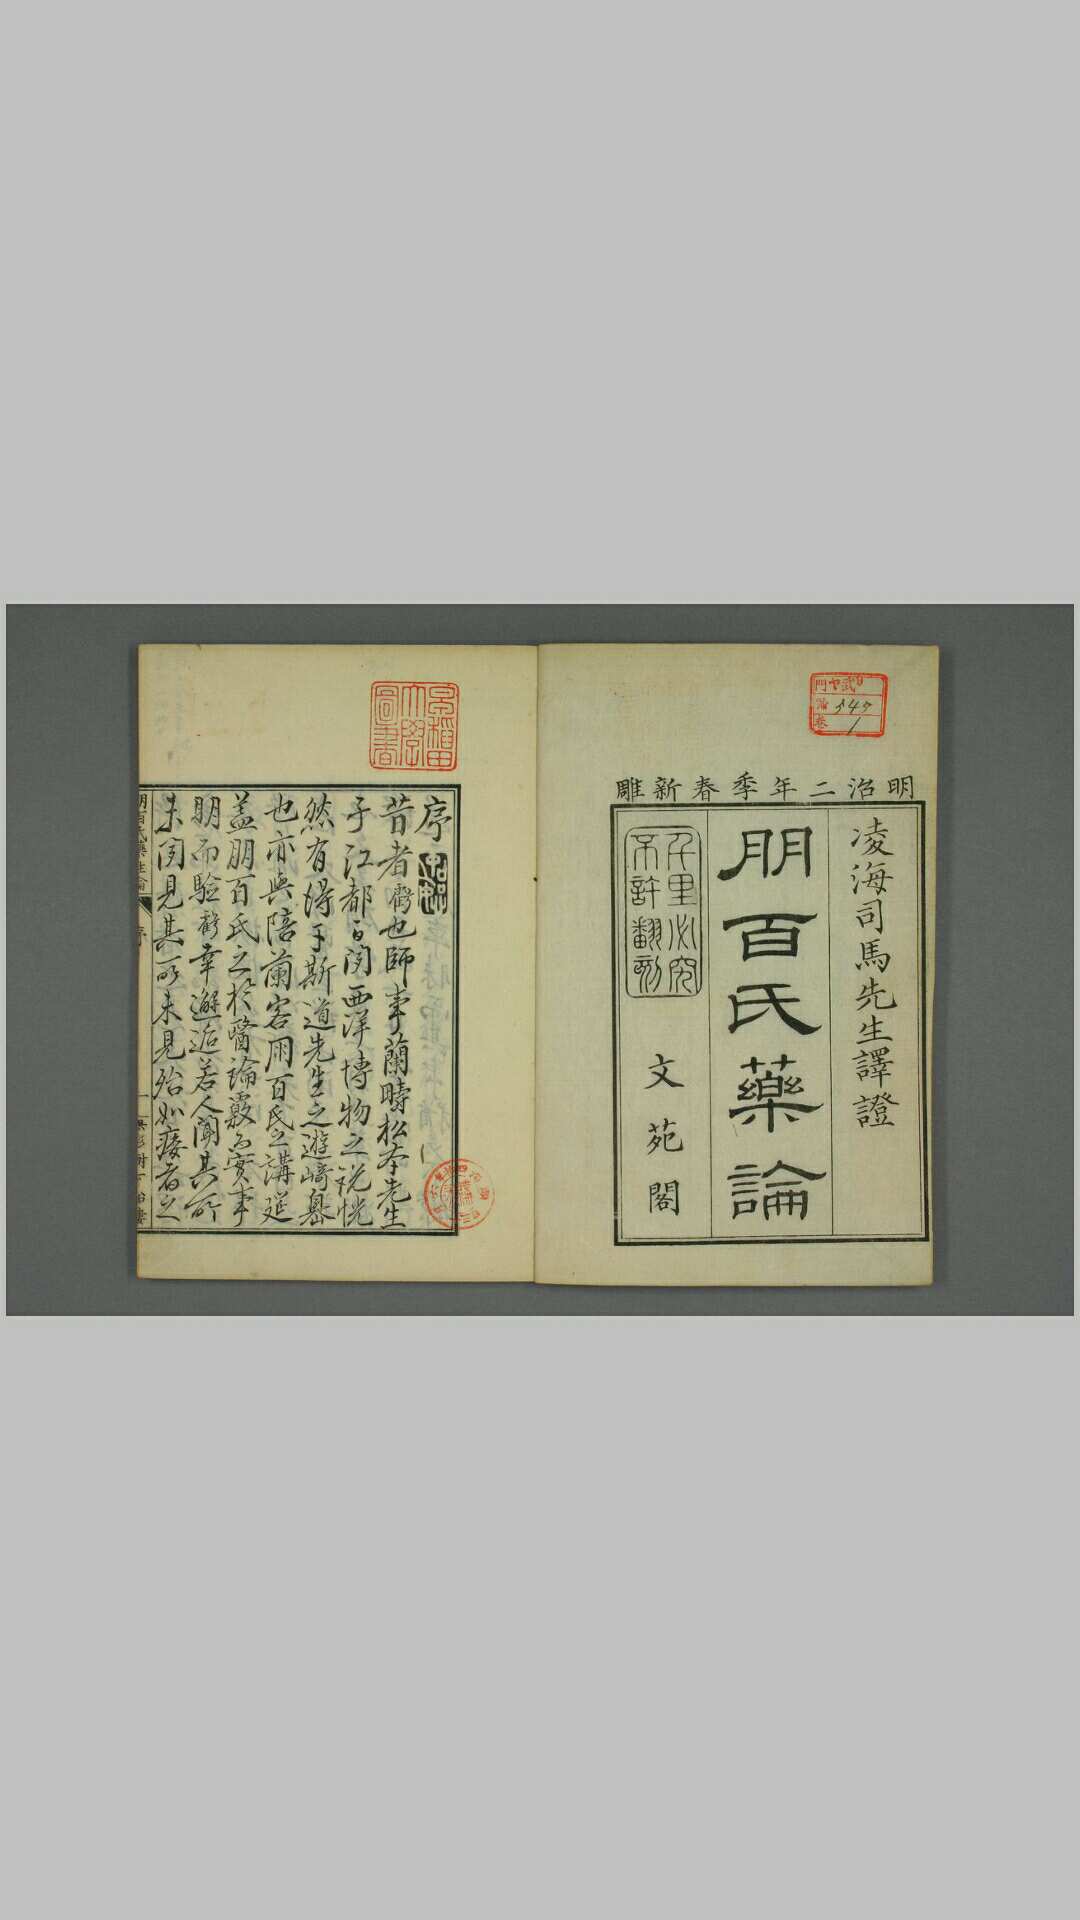 明治二年季春新雕
凌海司馬先生譯證
朋百氏藥論
千里必究
不許翻刻
文苑閣
門
卷
547
1
早稲田
大學
圖書
序
昔者 也師事蘭疇松本先生
于江都 聞西洋博物之説恍
然有得于斯道先生之遊崎 
也亦與陪蘭客朋百氏之講筵
蓋朋百氏之於醫論 為實事
明而驗 幸邂逅若人聞其所
未聞見其所未見殆如痿者之
朋百氏藥性論
序
一